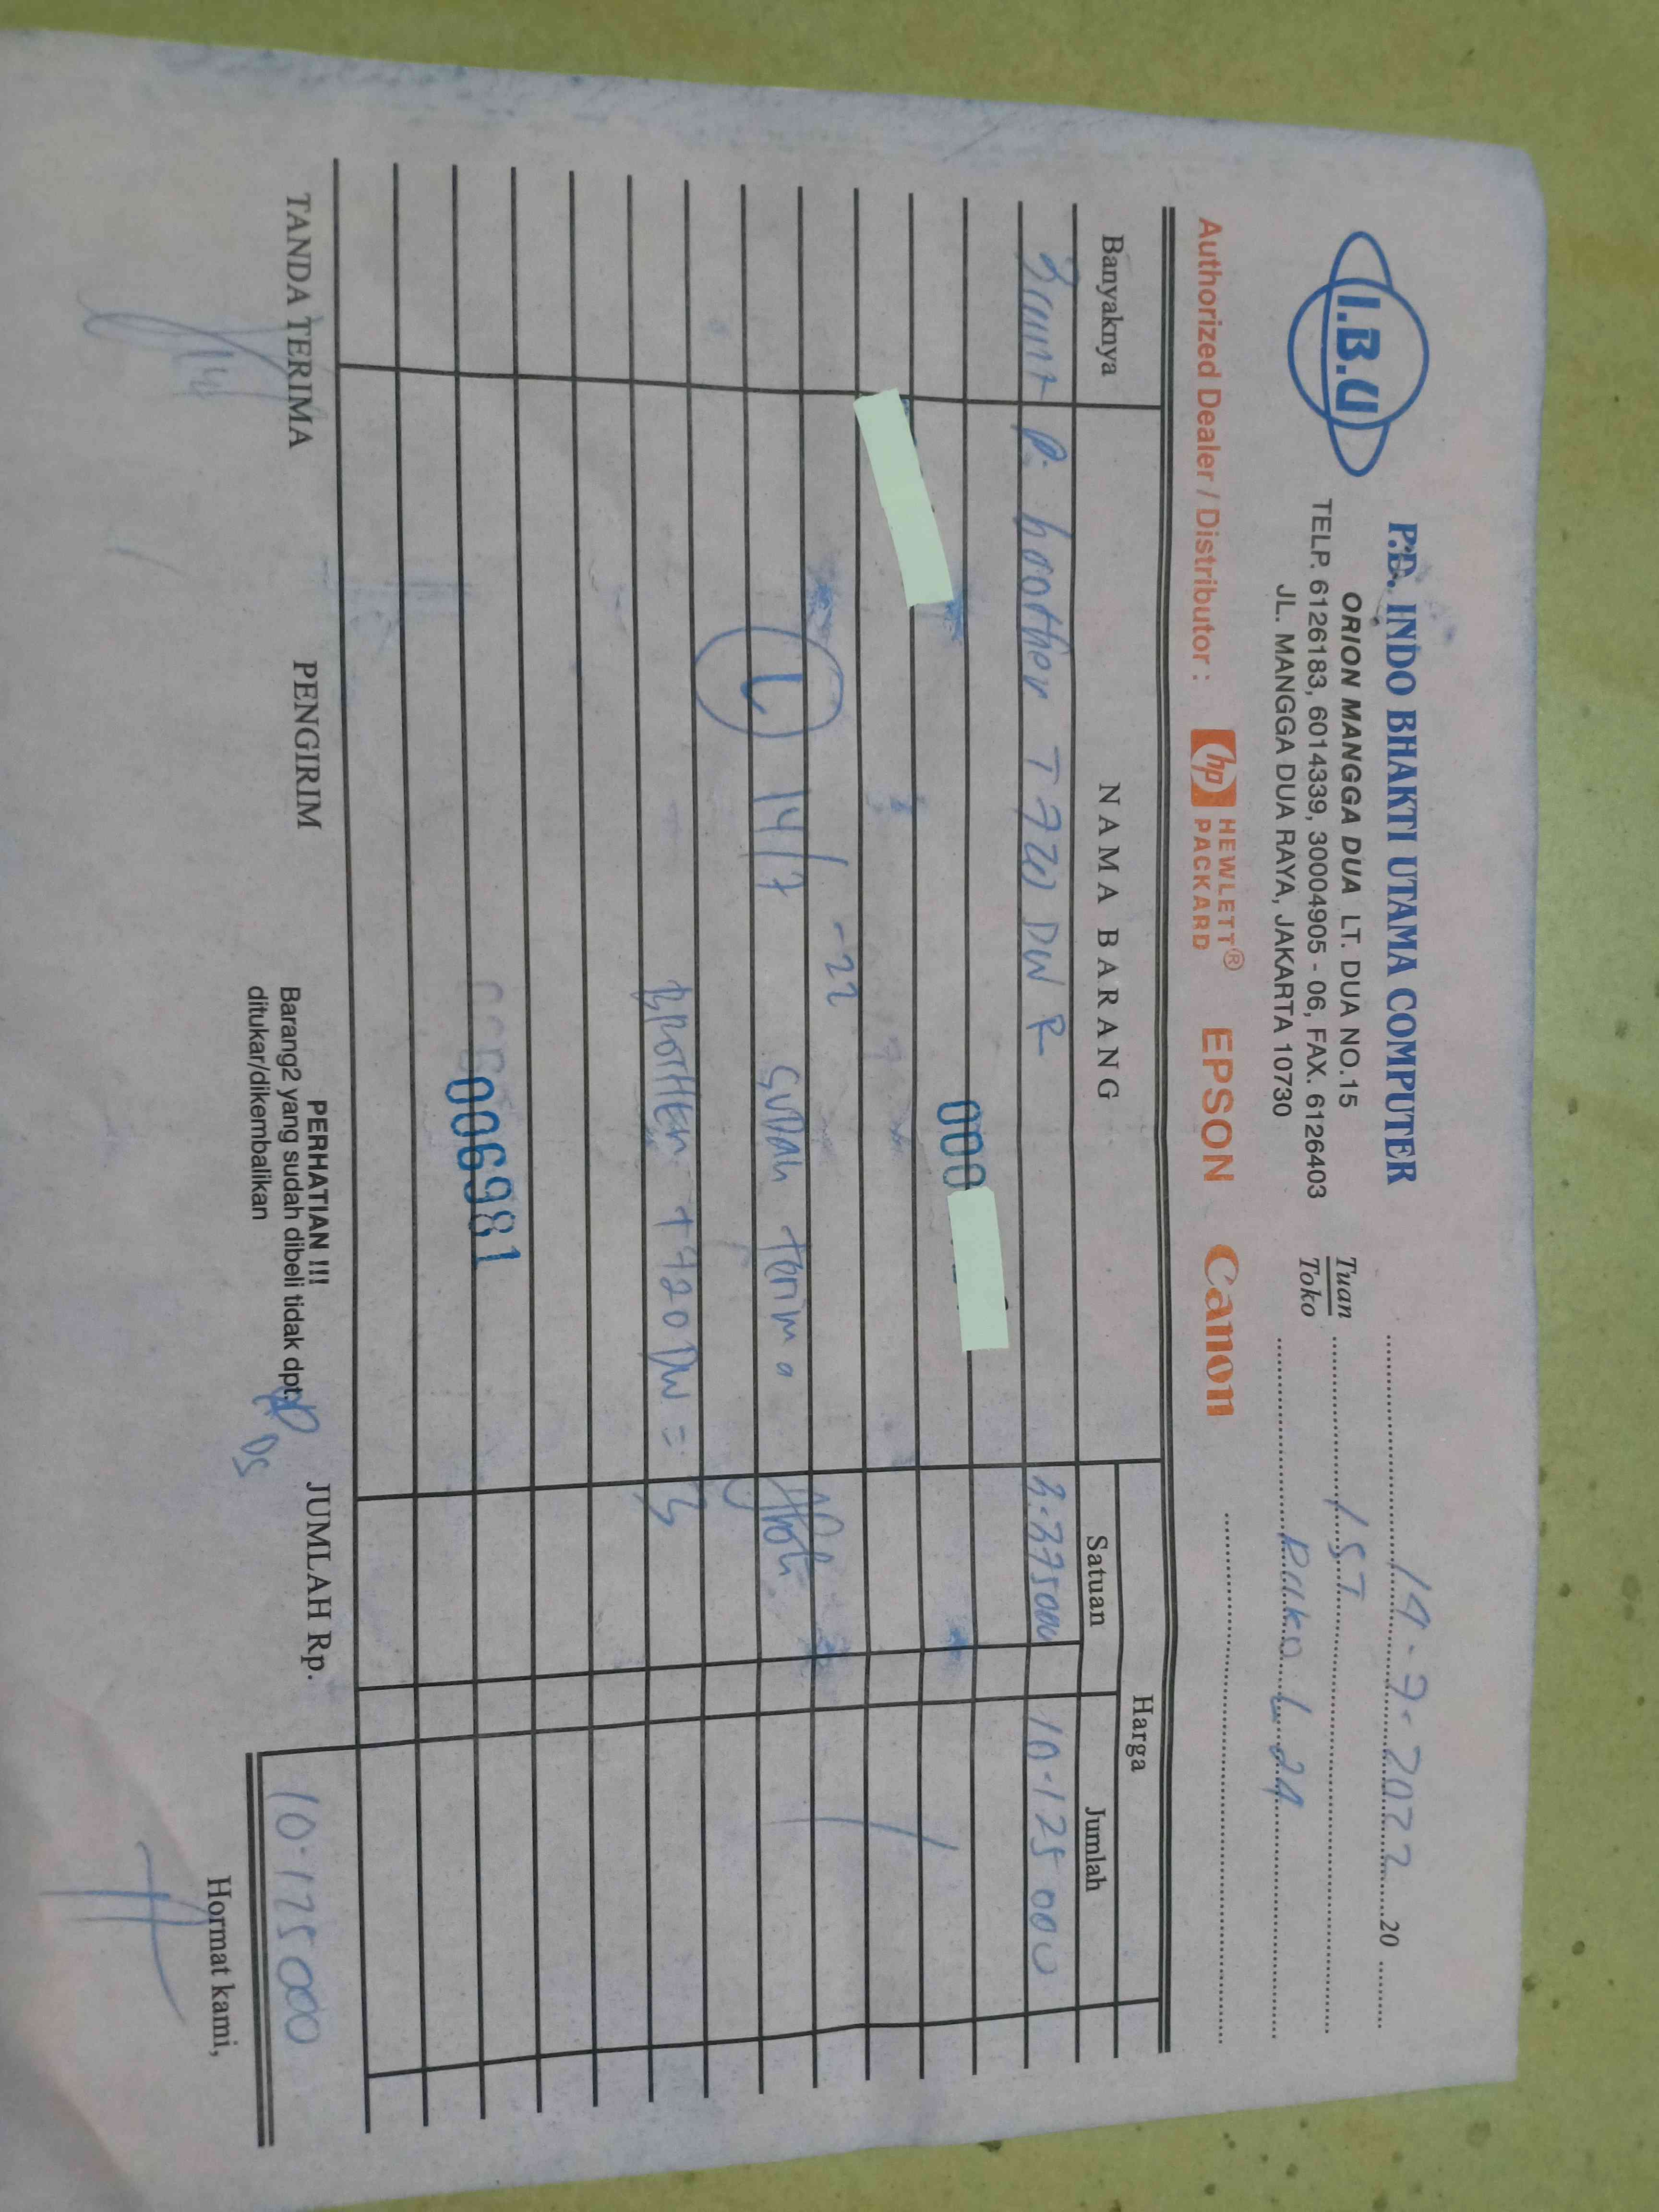 I.B.U
P.D. INDO BHAKTI UTAMA COMPUTER
ORION MANGGA DUA LT. DUA NO.15
TELP. 6126183, 6014339, 30004905 - 06, FAX. 6126403
JL. MANGGA DUA RAYA, JAKARTA 10730
14-7-2022 20
Tuan
Toko
IST
Ruko L 24
Authorized Dealer / Distributor : hp HEWLETT® PACKARD EPSON Canon
Banyaknya NAMA BARANG Harga
Satuan Jumlah
3 unit P. brother T 720 DW R 3.375000 10.125 000
000
14/7 -22 SUDAH terima
BROTHER T 720 DW = 3
006981
TANDA TERIMA PENGIRIM
PERHATIAN !!!
Barang2 yang sudah dibeli tidak dpt.
ditukar/dikembalikan
JUMLAH Rp. 10.125 000
Hormat kami,